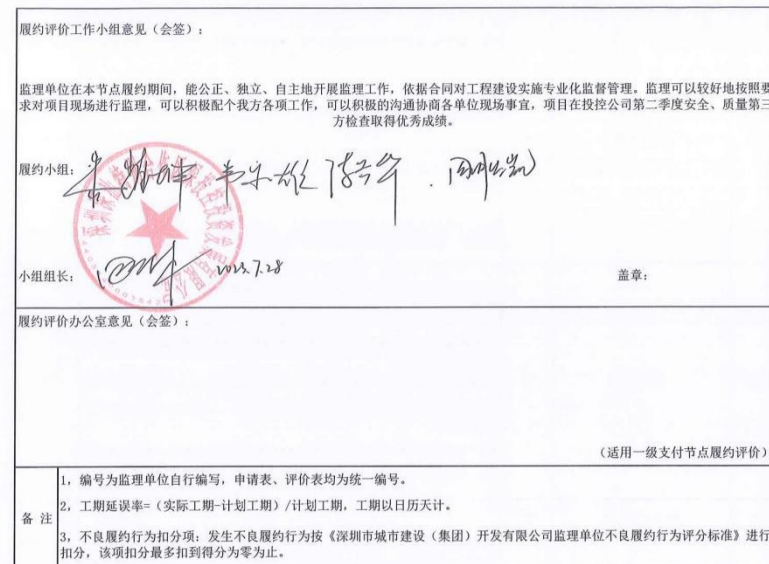 履约评价工作小组意见（会签）：
监理单位在本节点履约期间，能公正、独立、自主地开展监理工作，依据合同对工程建设实施专业化监督管理。监理可以较好地按照要
求对项目现场进行监理，可以积极配个我方各项工作，可以积极的沟通协商各单位现场事宜，项目在投控公司第二季度安全、质量第三
方检查取得优秀成绩。
履约小组：
小组组长： 2023.7.28 盖章：
履约评价办公室意见（会签）：
（适用一级支付节点履约评价）
备 注
1，编号为监理单位自行编写，申请表、评价表均为统一编号。
2，工期延误率=（实际工期-计划工期）/计划工期，工期以日历天计。
3，不良履约行为扣分项：发生不良履约行为按《深圳市城市建设（集团）开发有限公司监理单位不良履约行为评分标准》进行
扣分，该项扣分最多扣到得分为零为止。